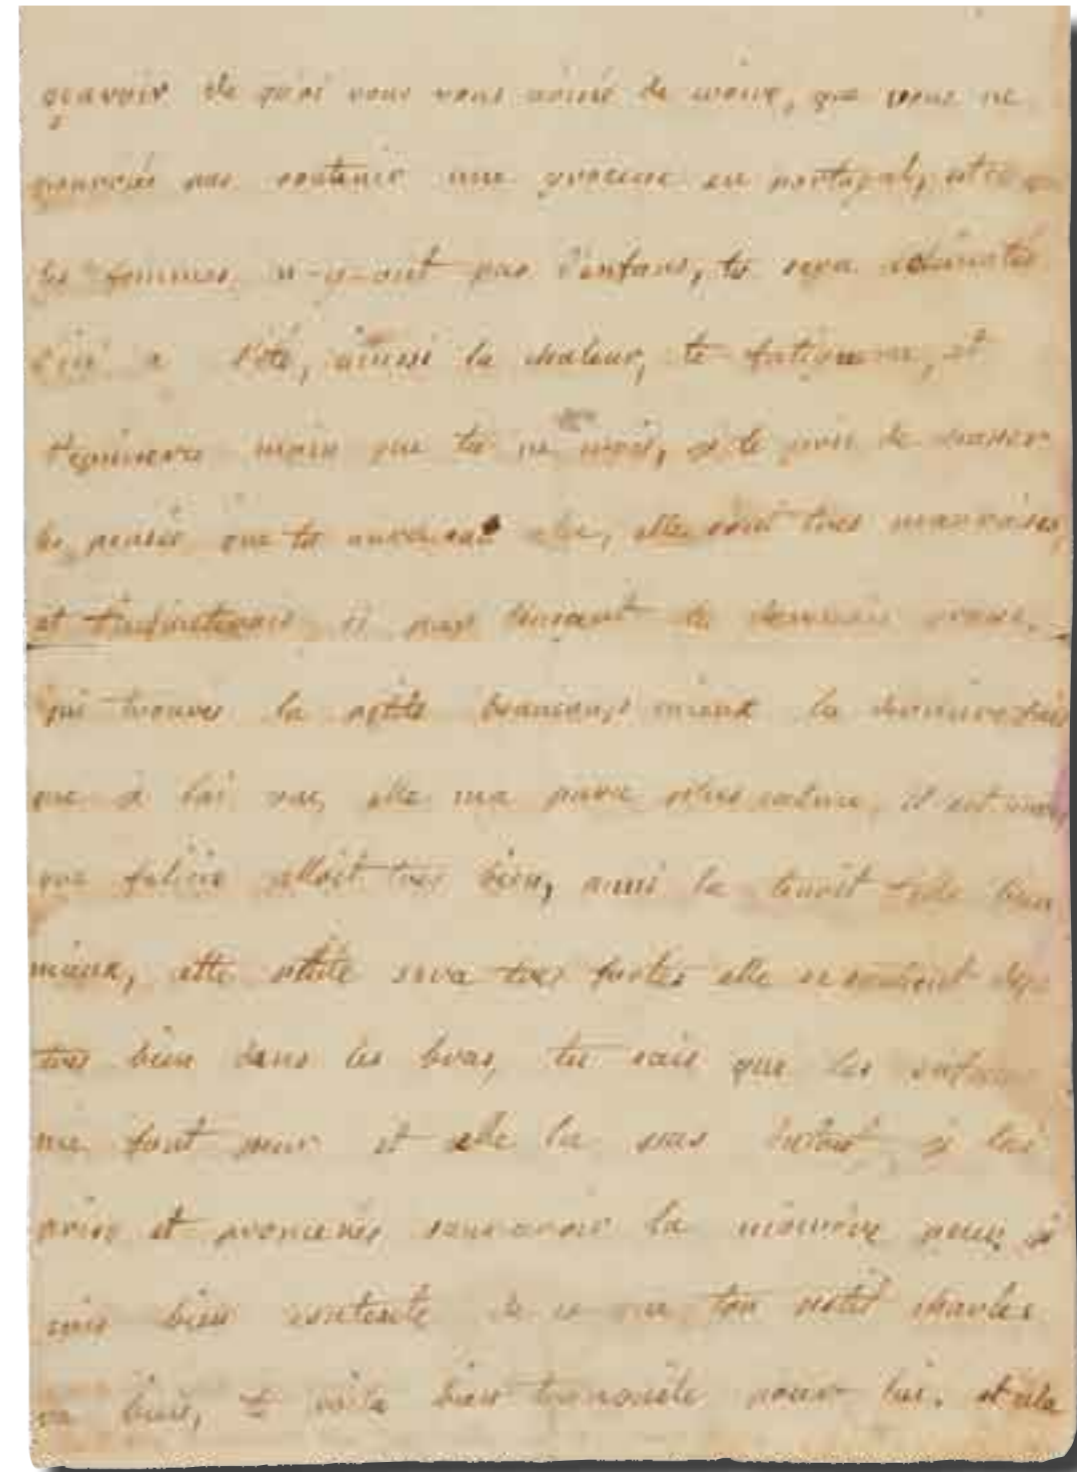 sçavoir de quoi vous vous aviné de croire, que vous ne
pourriés pas soutenir une grocesse en portugal,
les femmes n-y-ont pas d'enfans, tu sera
d'ici a l'été, ainssi la chaleur, te fatiguera, et
t'épuisera moin que tu ne crois, je te prie de chasser
les pensés que tu elle, elle sont tres mauvaises,
et si
j'ai trouvés la petite beaucoup mieux la derniere fois
que je l'ai vue, elle ma parue il est vrai
que felicie alloit tres bien, aussi la tenoit elle bien
mieux, cette petite sera tres fortes elle se soutient deja
tres bien dans les bras, tu sais que les enfans
me font peur et elle la pas je l'ai
prise et promenés sans avoir la moindre peur, je
suis bien contente de ce que ton petit charles
va bien, te voila bien tranquile pour lui. et cela